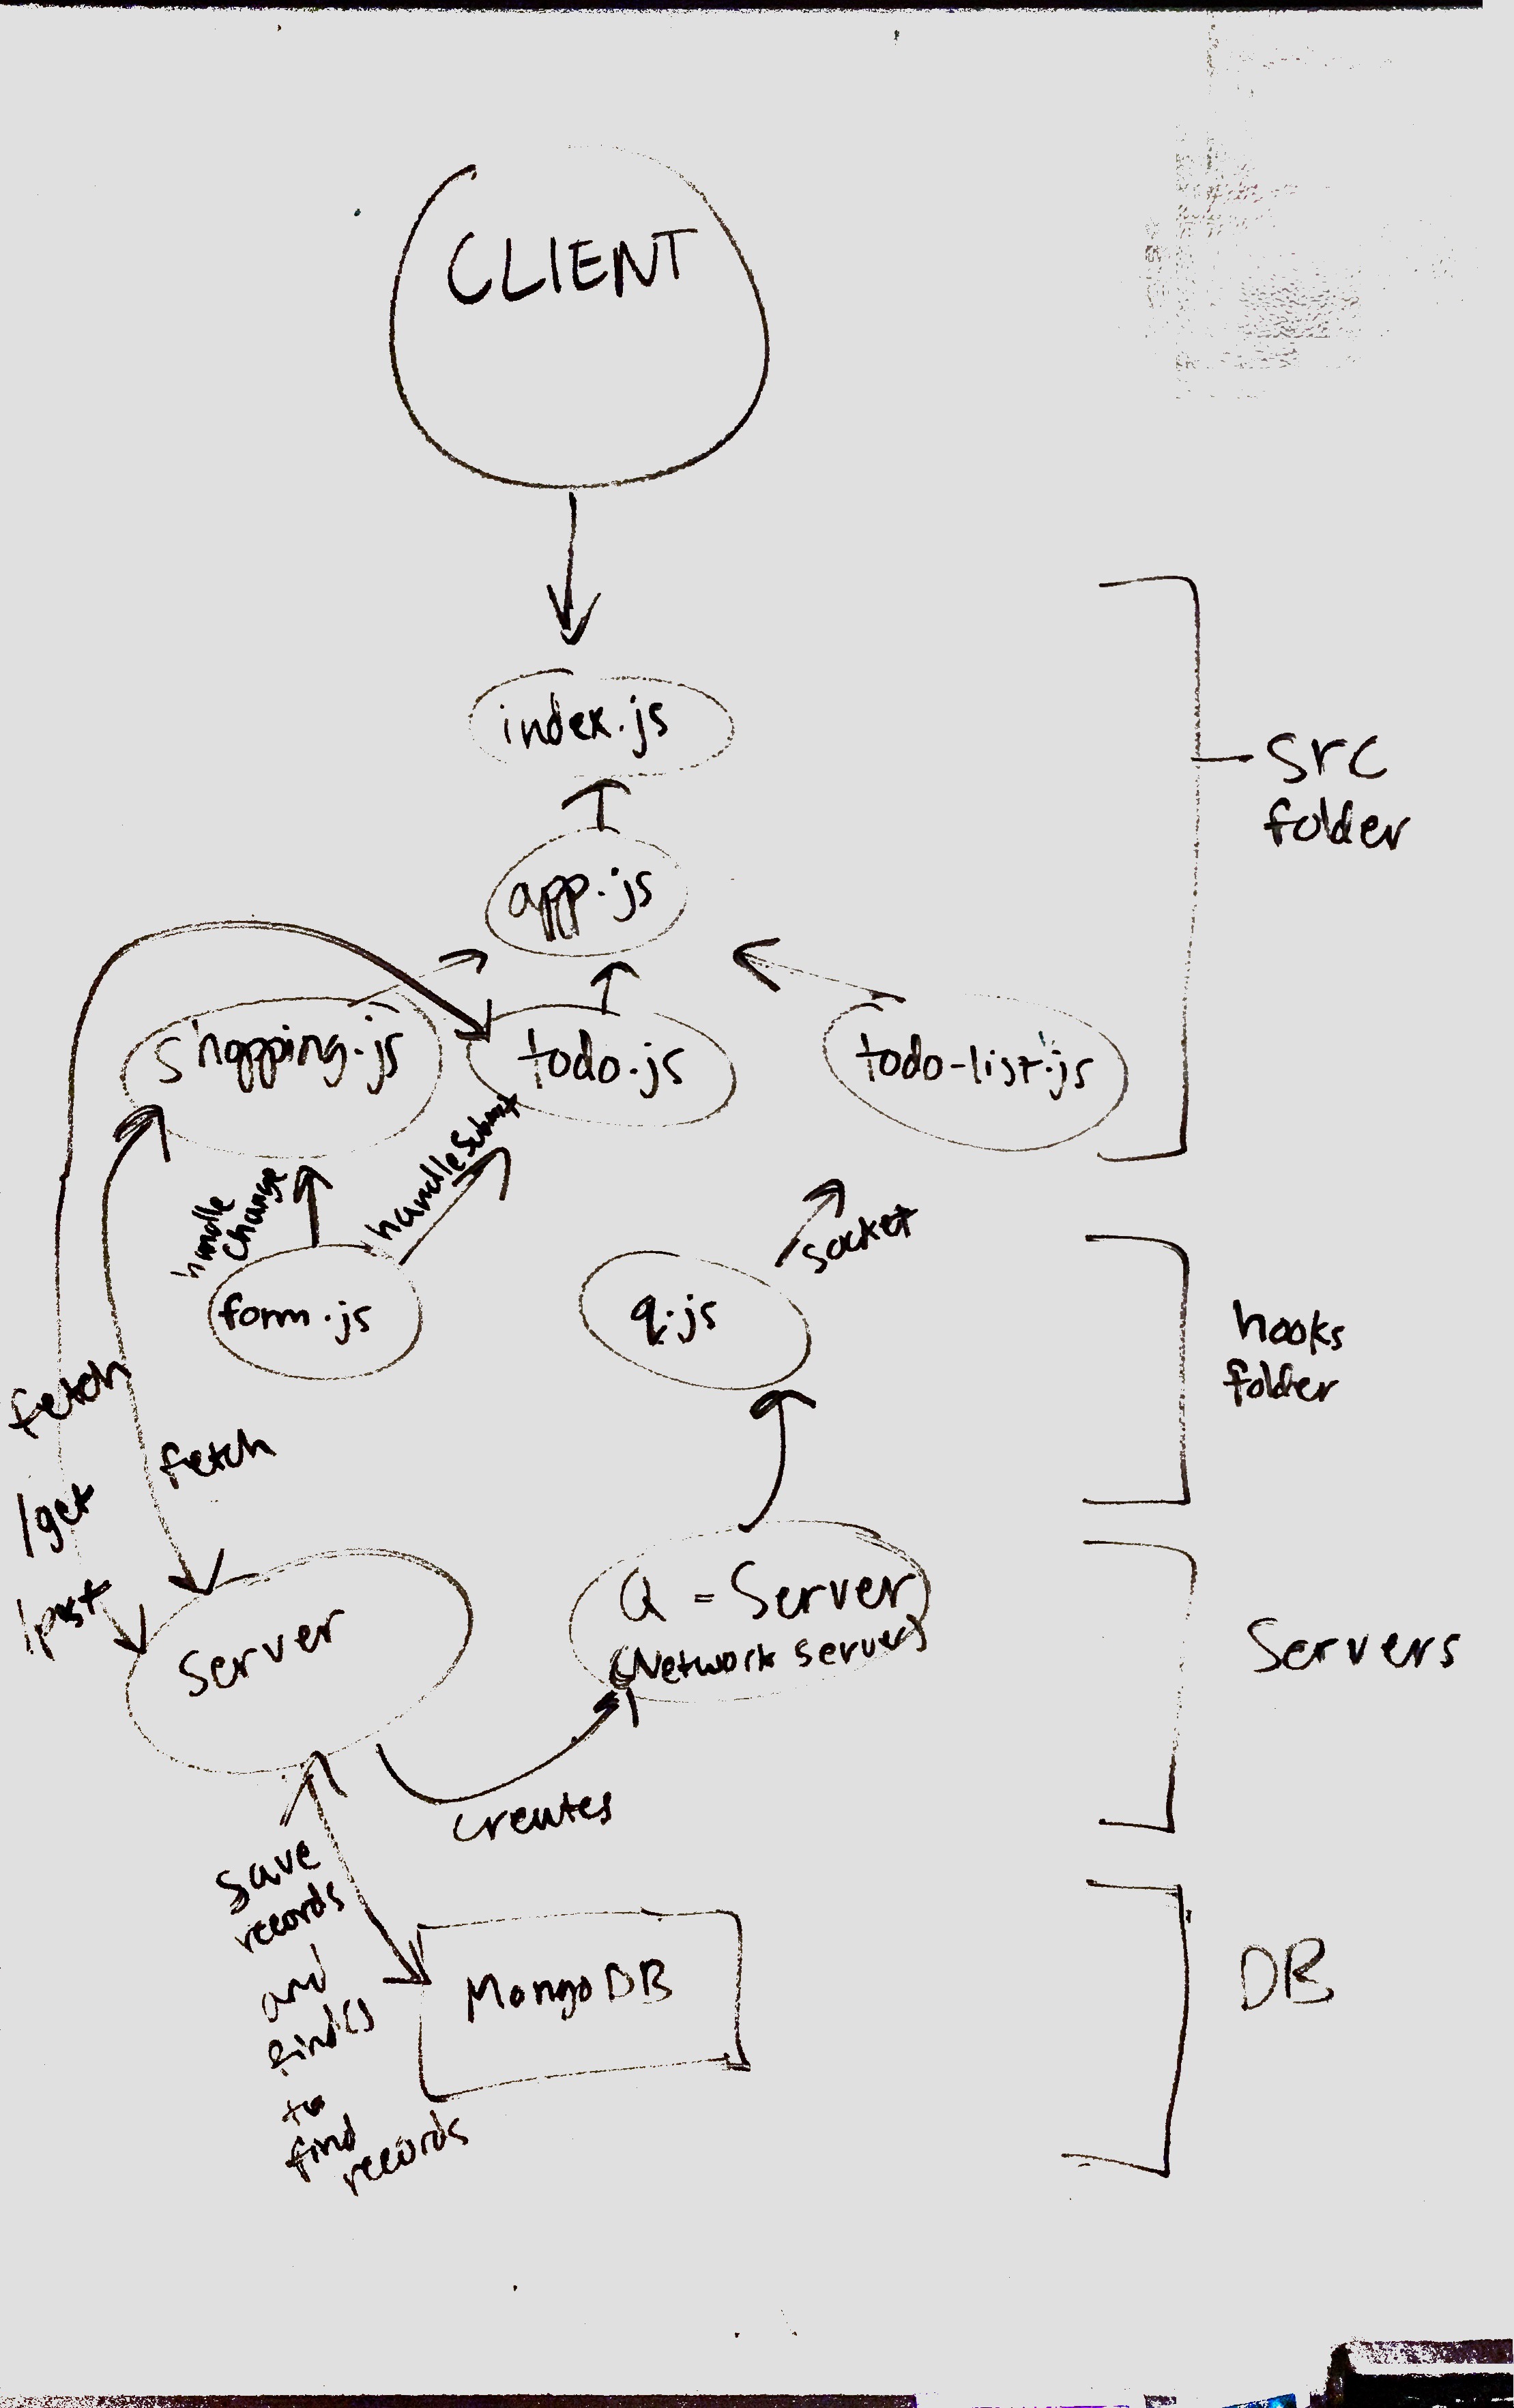 CLIENT
index.js
src
folder
app.js
shopping.js
todo.js
todo-list.js
handle
change
handleSubmit
socket
form.js
q.js
hooks
folder
fetch
fetch
/get
/post
Server
Q = Server
(Network server)
Servers
creates
save
records
and
find()
to
find
records
MongoDB
DB